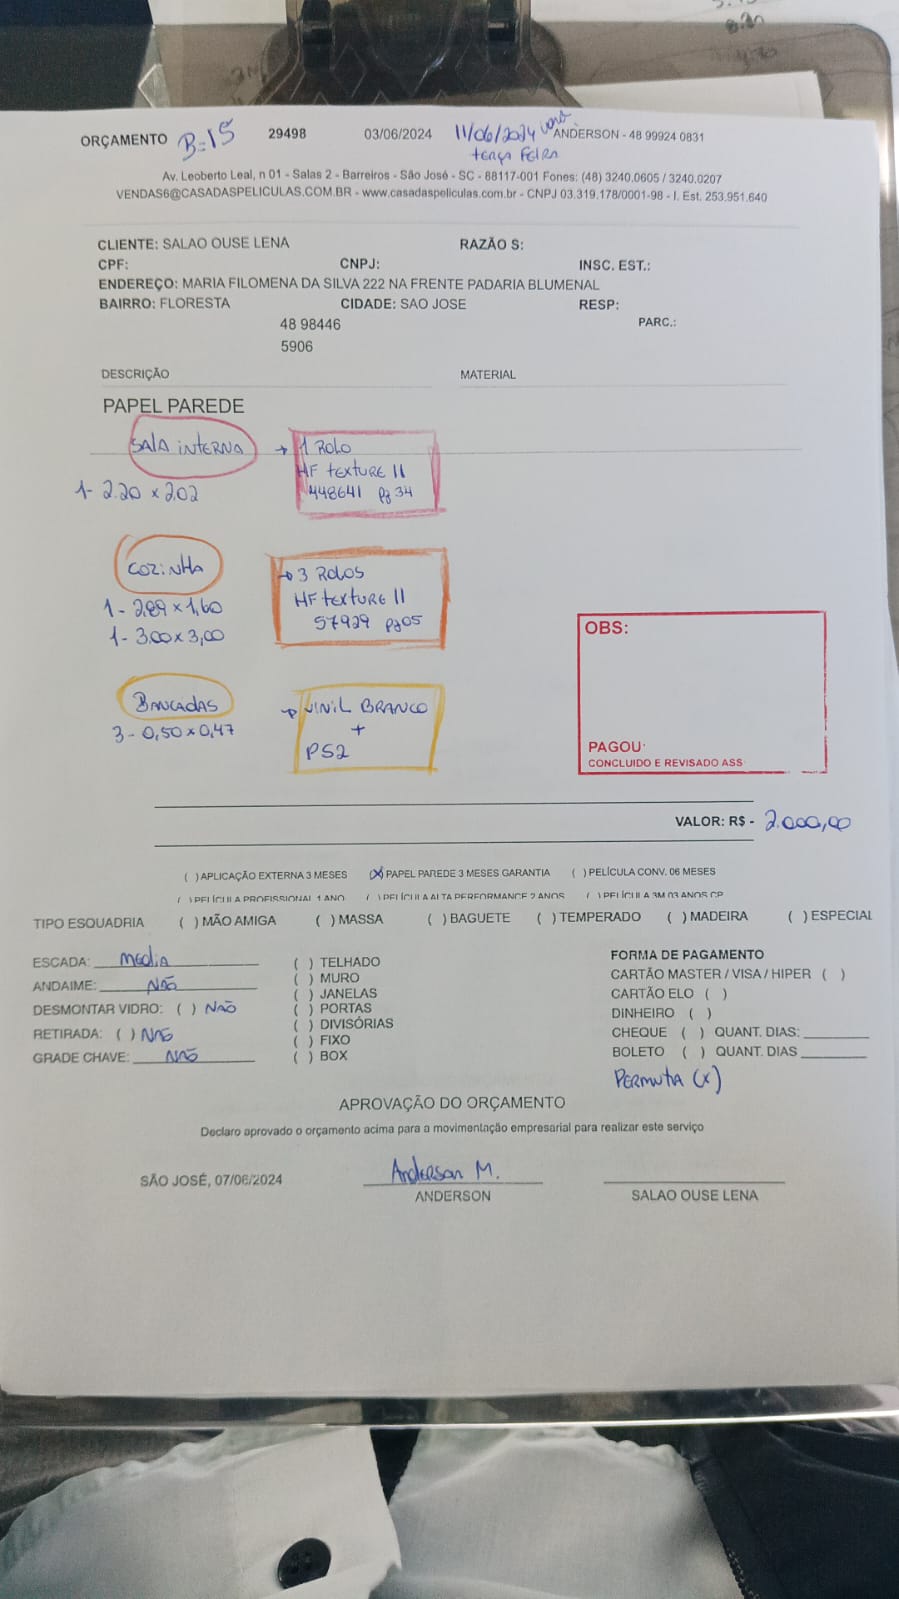 ORÇAMENTO B=15 29498 03/06/2024 11/06/2024 ANDERSON - 48 99924 0831
TERÇA FEIRA
Av. Leoberto Leal, n 01 - Salas 2 - Barreiros - São José - SC - 88117-001 Fones: (48) 3240.0605 / 3240.0207
VENDAS6@CASADASPELICULAS.COM.BR - www.casadaspeliculas.com.br - CNPJ 03.319.178/0001-98 - I. Est. 253.951.640
CLIENTE: SALAO OUSE LENA RAZÃO S:
CPF: CNPJ: INSC. EST.:
ENDEREÇO: MARIA FILOMENA DA SILVA 222 NA FRENTE PADARIA BLUMENAL
BAIRRO: FLORESTA CIDADE: SAO JOSE RESP:
48 98446 PARC.:
5906
DESCRIÇÃO MATERIAL
PAPEL PAREDE
SALA INTERNA → 1 ROLO
HF TEXTURE II
1- 2.20 x 2.02 448641 Pg 34
COZINHA → 3 ROLOS
1- 2,89 x 1,60 HF TEXTURE II
1- 3.00 x 3,00 57929 Pg 05
BANCADAS → VINIL BRANCO
3 - 0,50 x 0,47 +
PS2
OBS:
PAGOU:
CONCLUIDO E REVISADO ASS
VALOR: R$ - 2.000,00
( ) APLICAÇÃO EXTERNA 3 MESES (X) PAPEL PAREDE 3 MESES GARANTIA ( ) PELÍCULA CONV. 06 MESES
( ) PELÍCULA PROFISSIONAL 1 ANO ( ) PELÍCULA ALTA PERFORMANCE 2 ANOS ( ) PELÍCULA 3M 03 ANOS CP
TIPO ESQUADRIA ( ) MÃO AMIGA ( ) MASSA ( ) BAGUETE ( ) TEMPERADO ( ) MADEIRA ( ) ESPECIAL
ESCADA: MEDIA ( ) TELHADO FORMA DE PAGAMENTO
ANDAIME: NÃO ( ) MURO CARTÃO MASTER / VISA / HIPER ( )
( ) JANELAS CARTÃO ELO ( )
DESMONTAR VIDRO: ( ) NÃO ( ) PORTAS DINHEIRO ( )
RETIRADA: ( ) NÃO ( ) DIVISÓRIAS CHEQUE ( ) QUANT. DIAS:
( ) FIXO
GRADE CHAVE: NÃO ( ) BOX BOLETO ( ) QUANT. DIAS
PERMUTA (X)
APROVAÇÃO DO ORÇAMENTO
Declaro aprovado o orçamento acima para a movimentação empresarial para realizar este serviço
SÃO JOSÉ, 07/06/2024 Anderson M.
ANDERSON SALAO OUSE LENA